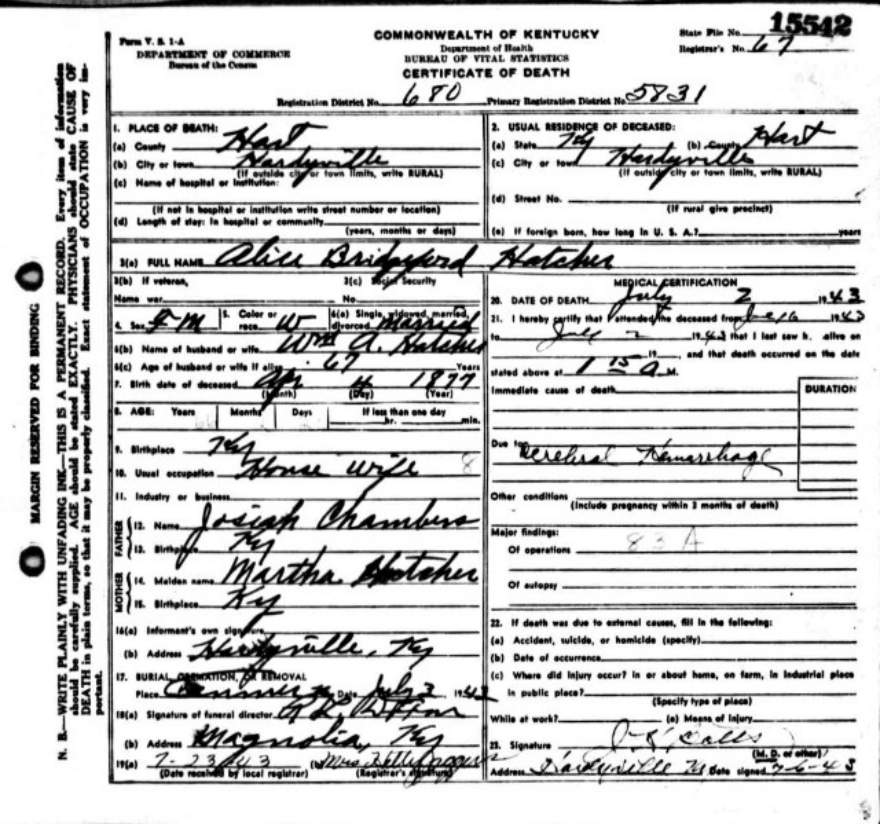 15542
Form V. S. 1-A
DEPARTMENT OF COMMERCE
Bureau of the Census
COMMONWEALTH OF KENTUCKY
Department of Health
BUREAU OF VITAL STATISTICS
CERTIFICATE OF DEATH
State File No.
Registrar's No. 67
Registration District No. 680 Primary Registration District No. 5831
MARGIN RESERVED FOR BINDING
N. B.—WRITE PLAINLY WITH UNFADING INK—THIS IS A PERMANENT RECORD. Every item of information
should be carefully supplied. AGE should be stated EXACTLY. PHYSICIANS should state CAUSE OF
DEATH in plain terms, so that it may be properly classified. Exact statement of OCCUPATION is very im-
portant.
1. PLACE OF DEATH:
(a) County Hart
(b) City or town Hardyville
(If outside city or town limits, write RURAL)
(c) Name of hospital or institution:
(If not in hospital or institution write street number or location)
(d) Length of stay: In hospital or community
(years, months or days)
2. USUAL RESIDENCE OF DECEASED:
(a) State Ky (b) County Hart
(c) City or town Hardyville
(If outside city or town limits, write RURAL)
(d) Street No.
(If rural give precinct)
(e) If foreign born, how long in U. S. A.? years
3(a) FULL NAME Alice Bridgeford Hatcher
3(b) If veteran, 3(c) Social Security
Name war No.
4. Sex F M 5. Color or race W 6(a) Single, widowed, married, divorced Married
6(b) Name of husband or wife Wm A. Hatcher
6(c) Age of husband or wife if alive 67 Years
7. Birth date of deceased Apr 4 1877
(Month) (Day) (Year)
8. AGE: Years Months Days If less than one day
hr. min.
9. Birthplace Ky
10. Usual occupation House wife 8
11. Industry or business
FATHER
12. Name Josiah Chambers
13. Birthplace Ky
MOTHER
14. Maiden name Martha Hatcher
15. Birthplace Ky
16(a) Informant's own signature
(b) Address Hardyville, Ky
17. BURIAL, CREMATION, OR REMOVAL
Place Date July 3 1943
18(a) Signature of funeral director
(b) Address Magnolia, Ky
19(a) 7-23-43 (b) Mrs.
(Date received by local registrar) (Registrar's signature)
MEDICAL CERTIFICATION
20. DATE OF DEATH July 2 1943
21. I hereby certify that I attended the deceased from 1943
to July 2 1943 that I last saw h. alive on
19, and that death occurred on the date
stated above at 1 15 A M.
Immediate cause of death DURATION
Due to Cerebral Hemorrhage
Other conditions
(Include pregnancy within 3 months of death)
Major findings:
Of operations 83 A
Of autopsy
22. If death was due to external causes, fill in the following:
(a) Accident, suicide, or homicide (specify)
(b) Date of occurrence
(c) Where did injury occur? in or about home, on farm, in industrial place
in public place?
(Specify type of place)
While at work? (e) Means of Injury
23. Signature
(M. D. or other)
Address Hardyville Ky Date signed 7-6-43